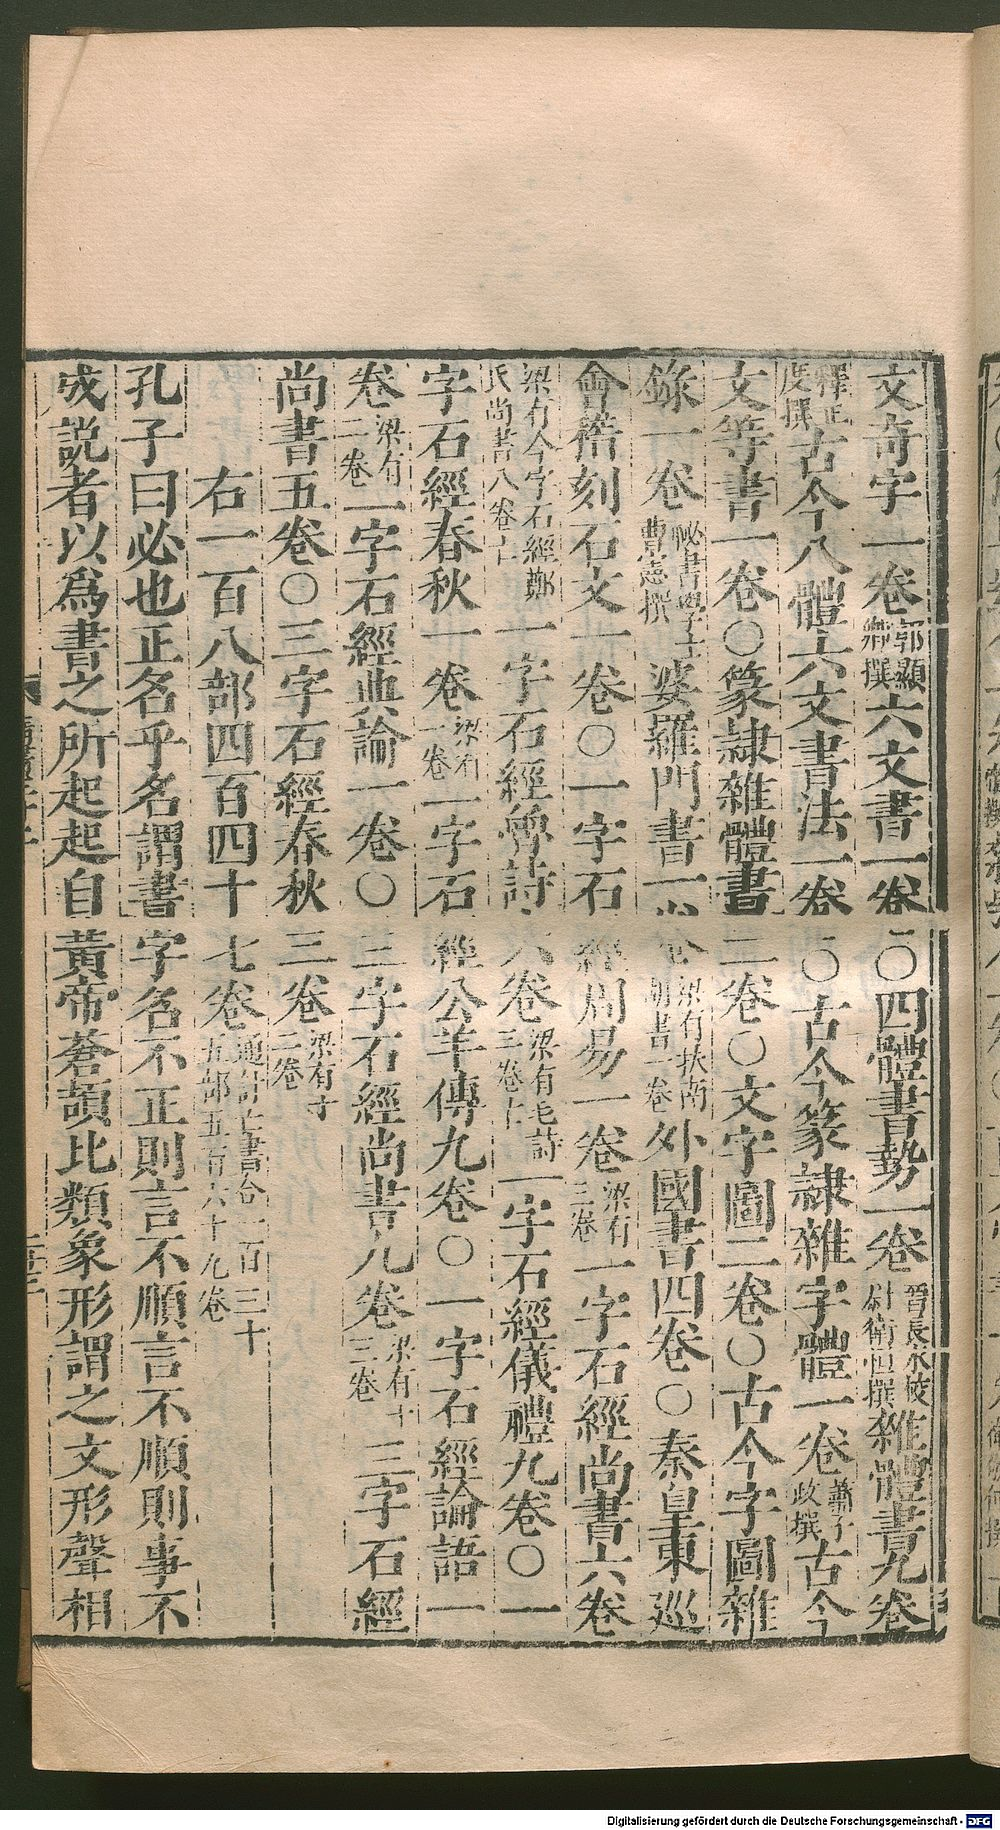 文奇字一卷郭顯卿撰六文書一卷〇四體書勢一卷晉長水校尉衛恒撰雜體書九卷
釋正度撰古今八體六文書法一卷〇古今篆隷雜字體一卷蕭子政撰古今
文等書一卷〇篆隷雜體書二卷〇文字圖二卷〇古今字圖雜
錄一卷祕書學士曹憲撰婆羅門書一卷梁有扶南胡書一卷外國書四卷〇秦皇東巡
會稽刻石文一卷〇一字石經周易一卷梁有三卷一字石經尚書六卷
梁有今字石經鄭氏尚書八卷亡一字石經魯詩六卷梁有毛詩二卷亡一字石經儀禮九卷〇一
字石經春秋一卷梁有一卷一字石經公羊傳九卷〇一字石經論語一
卷梁有二卷一字石經典論一卷〇三字石經尚書九卷梁有十三卷三字石經
尚書五卷〇三字石經春秋三卷梁有十二卷
右一百八部四百四十七卷通計亡書合一百三十五部五百六十九卷
孔子曰必也正名乎名謂書字名不正則言不順言不順則事不
成說者以爲書之所起起自黃帝蒼頡比類象形謂之文形聲相
Digitalisierung gefördert durch die Deutsche Forschungsgemeinschaft - DFG